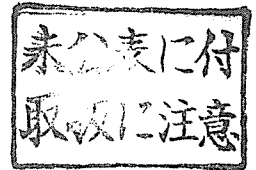 未公表に付
取扱に注意